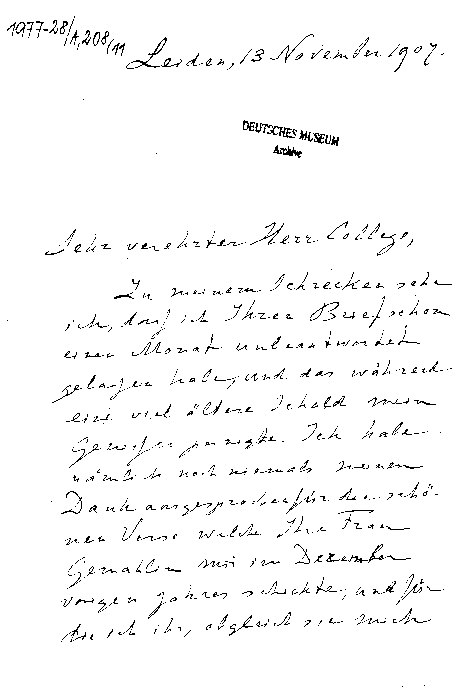 1977-28/A,208/11
Leiden, 13 November 1907.
DEUTSCHES MUSEUM
Archive
Sehr verehrter Herr College,
Zu meinem Schrecken sehe
ich, dass ich Ihren Brief schon
einen Monat unbeantwortet
gelassen habe, und das während
eine viel ältere Schuld mein
Gewissen peinigte. Ich habe
nämlich noch niemals meinen
Dank ausgesprochen für die schö-
nen Verse welche Ihre Frau
Gemahlin mir im Dezember
vorigen Jahres schickte, und für
die ich ihr, obgleich sie mich